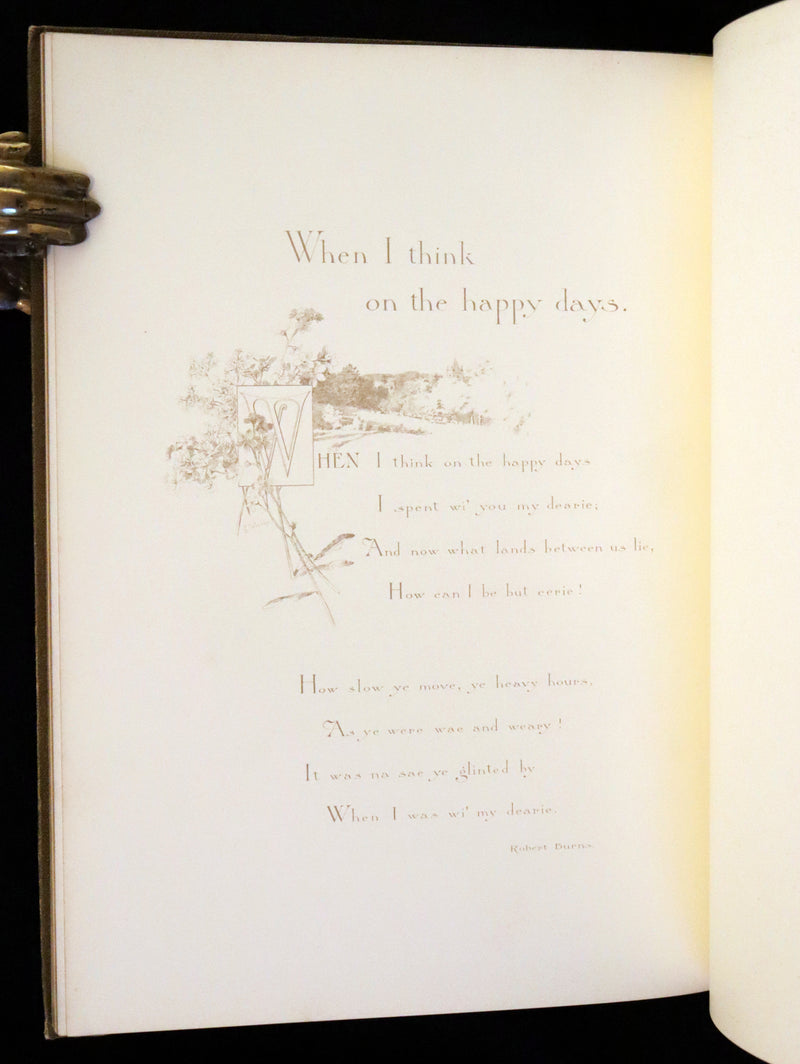 When I think
on the happy days.
WHEN I think on the happy days
I spent wi' you my dearie;
And now what lands between us lie,
How can I be but eerie!
How slow ye move, ye heavy hours,
As ye were wae and weary!
It was na sae ye glinted by
When I was wi' my dearie.
Robert Burns.